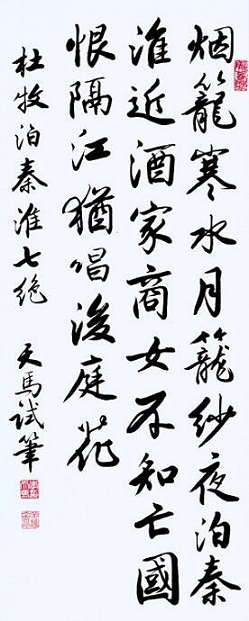 烟籠寒水月籠紗夜泊秦
淮近酒家商女不知亡國
恨隔江猶唱後庭花
杜牧泊秦淮七絕 天馬試筆